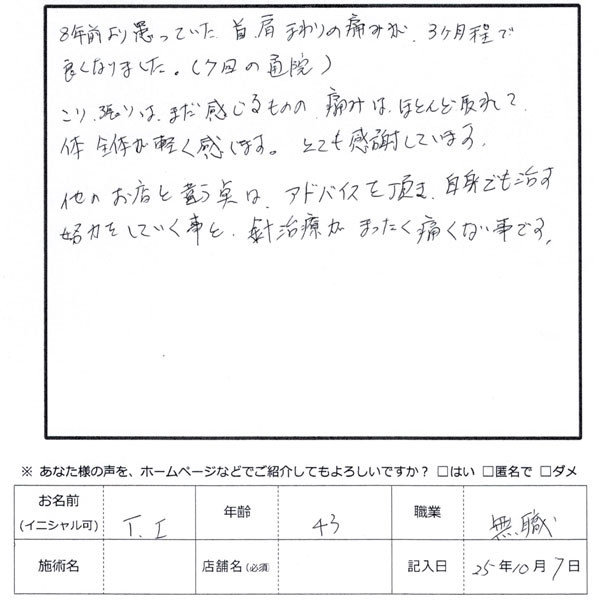 8年前より患っていた、首、肩まわりの痛みが、3ヶ月程で
良くなりました。(7回の通院)
こり、張りは、まだ感じるものの、痛みは、ほとんど取れて、
体全体が軽く感じます。とても感謝しています。
他のお店と違う点は、アドバイスを頂き、自身でも治す
努力をしていく事と、針治療がまったく痛くない事です。
※ あなた様の声を、ホームページなどでご紹介してもよろしいですか？ □はい □匿名で □ダメ
お名前 (イニシャル可) T. I 年齢 43 職業 無職
施術名 店舗名(必須) 記入日 25年10月7日